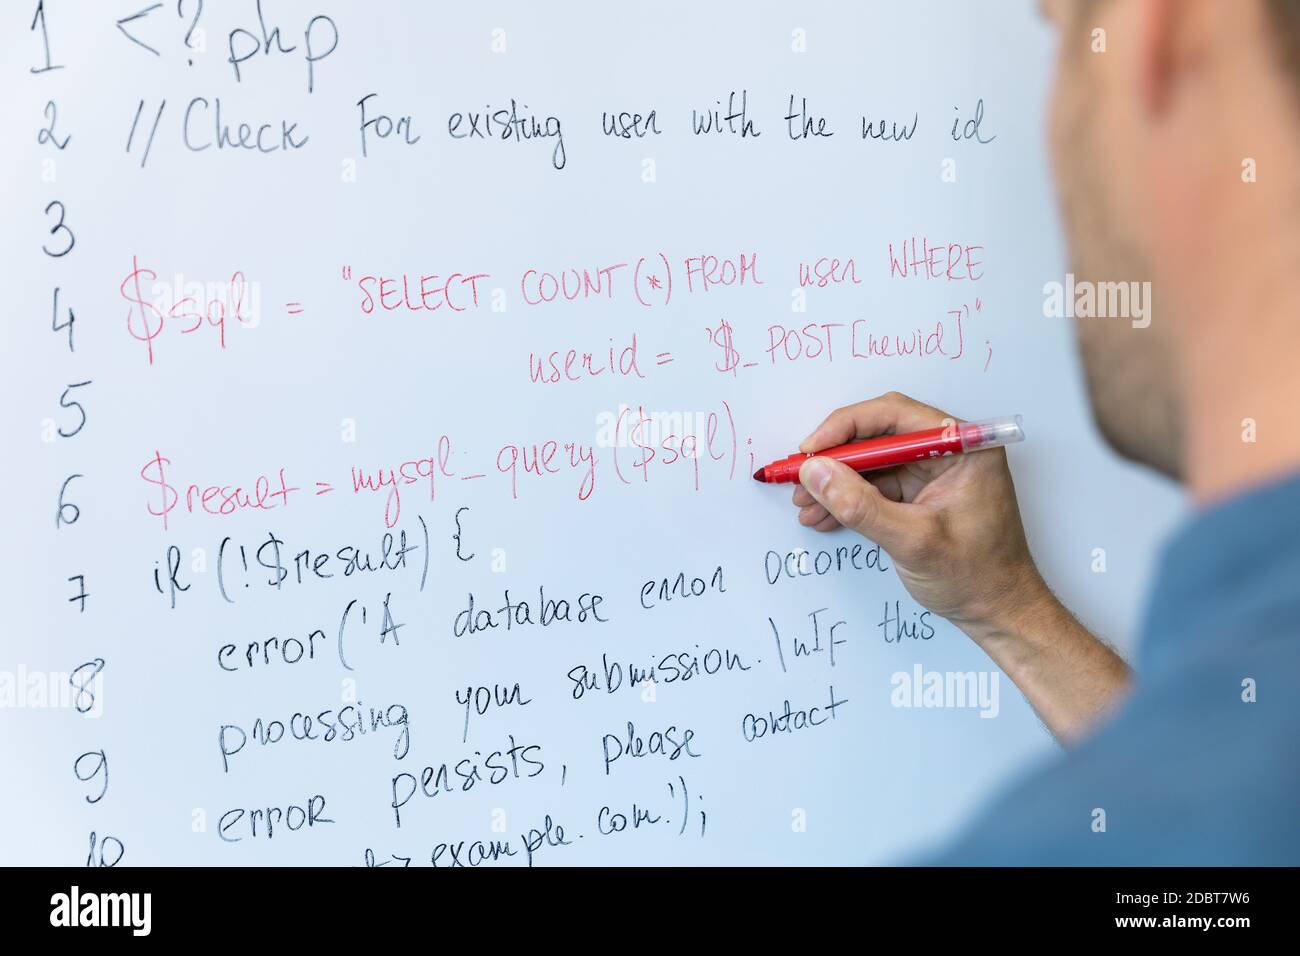 1 <?php
2 // Check For existing user with the new id
3
4 $sql = "SELECT COUNT(*) FROM user WHERE
userid = '$_POST[newid]'";
5
6 $result = mysql_query($sql);
7 if (!$result) {
8 error('A database error occored
processing your submission.\nIF this
9 error persists, please contact
10 example.com.');
alamy
Image ID: 2DBT7W6
www.alamy.com